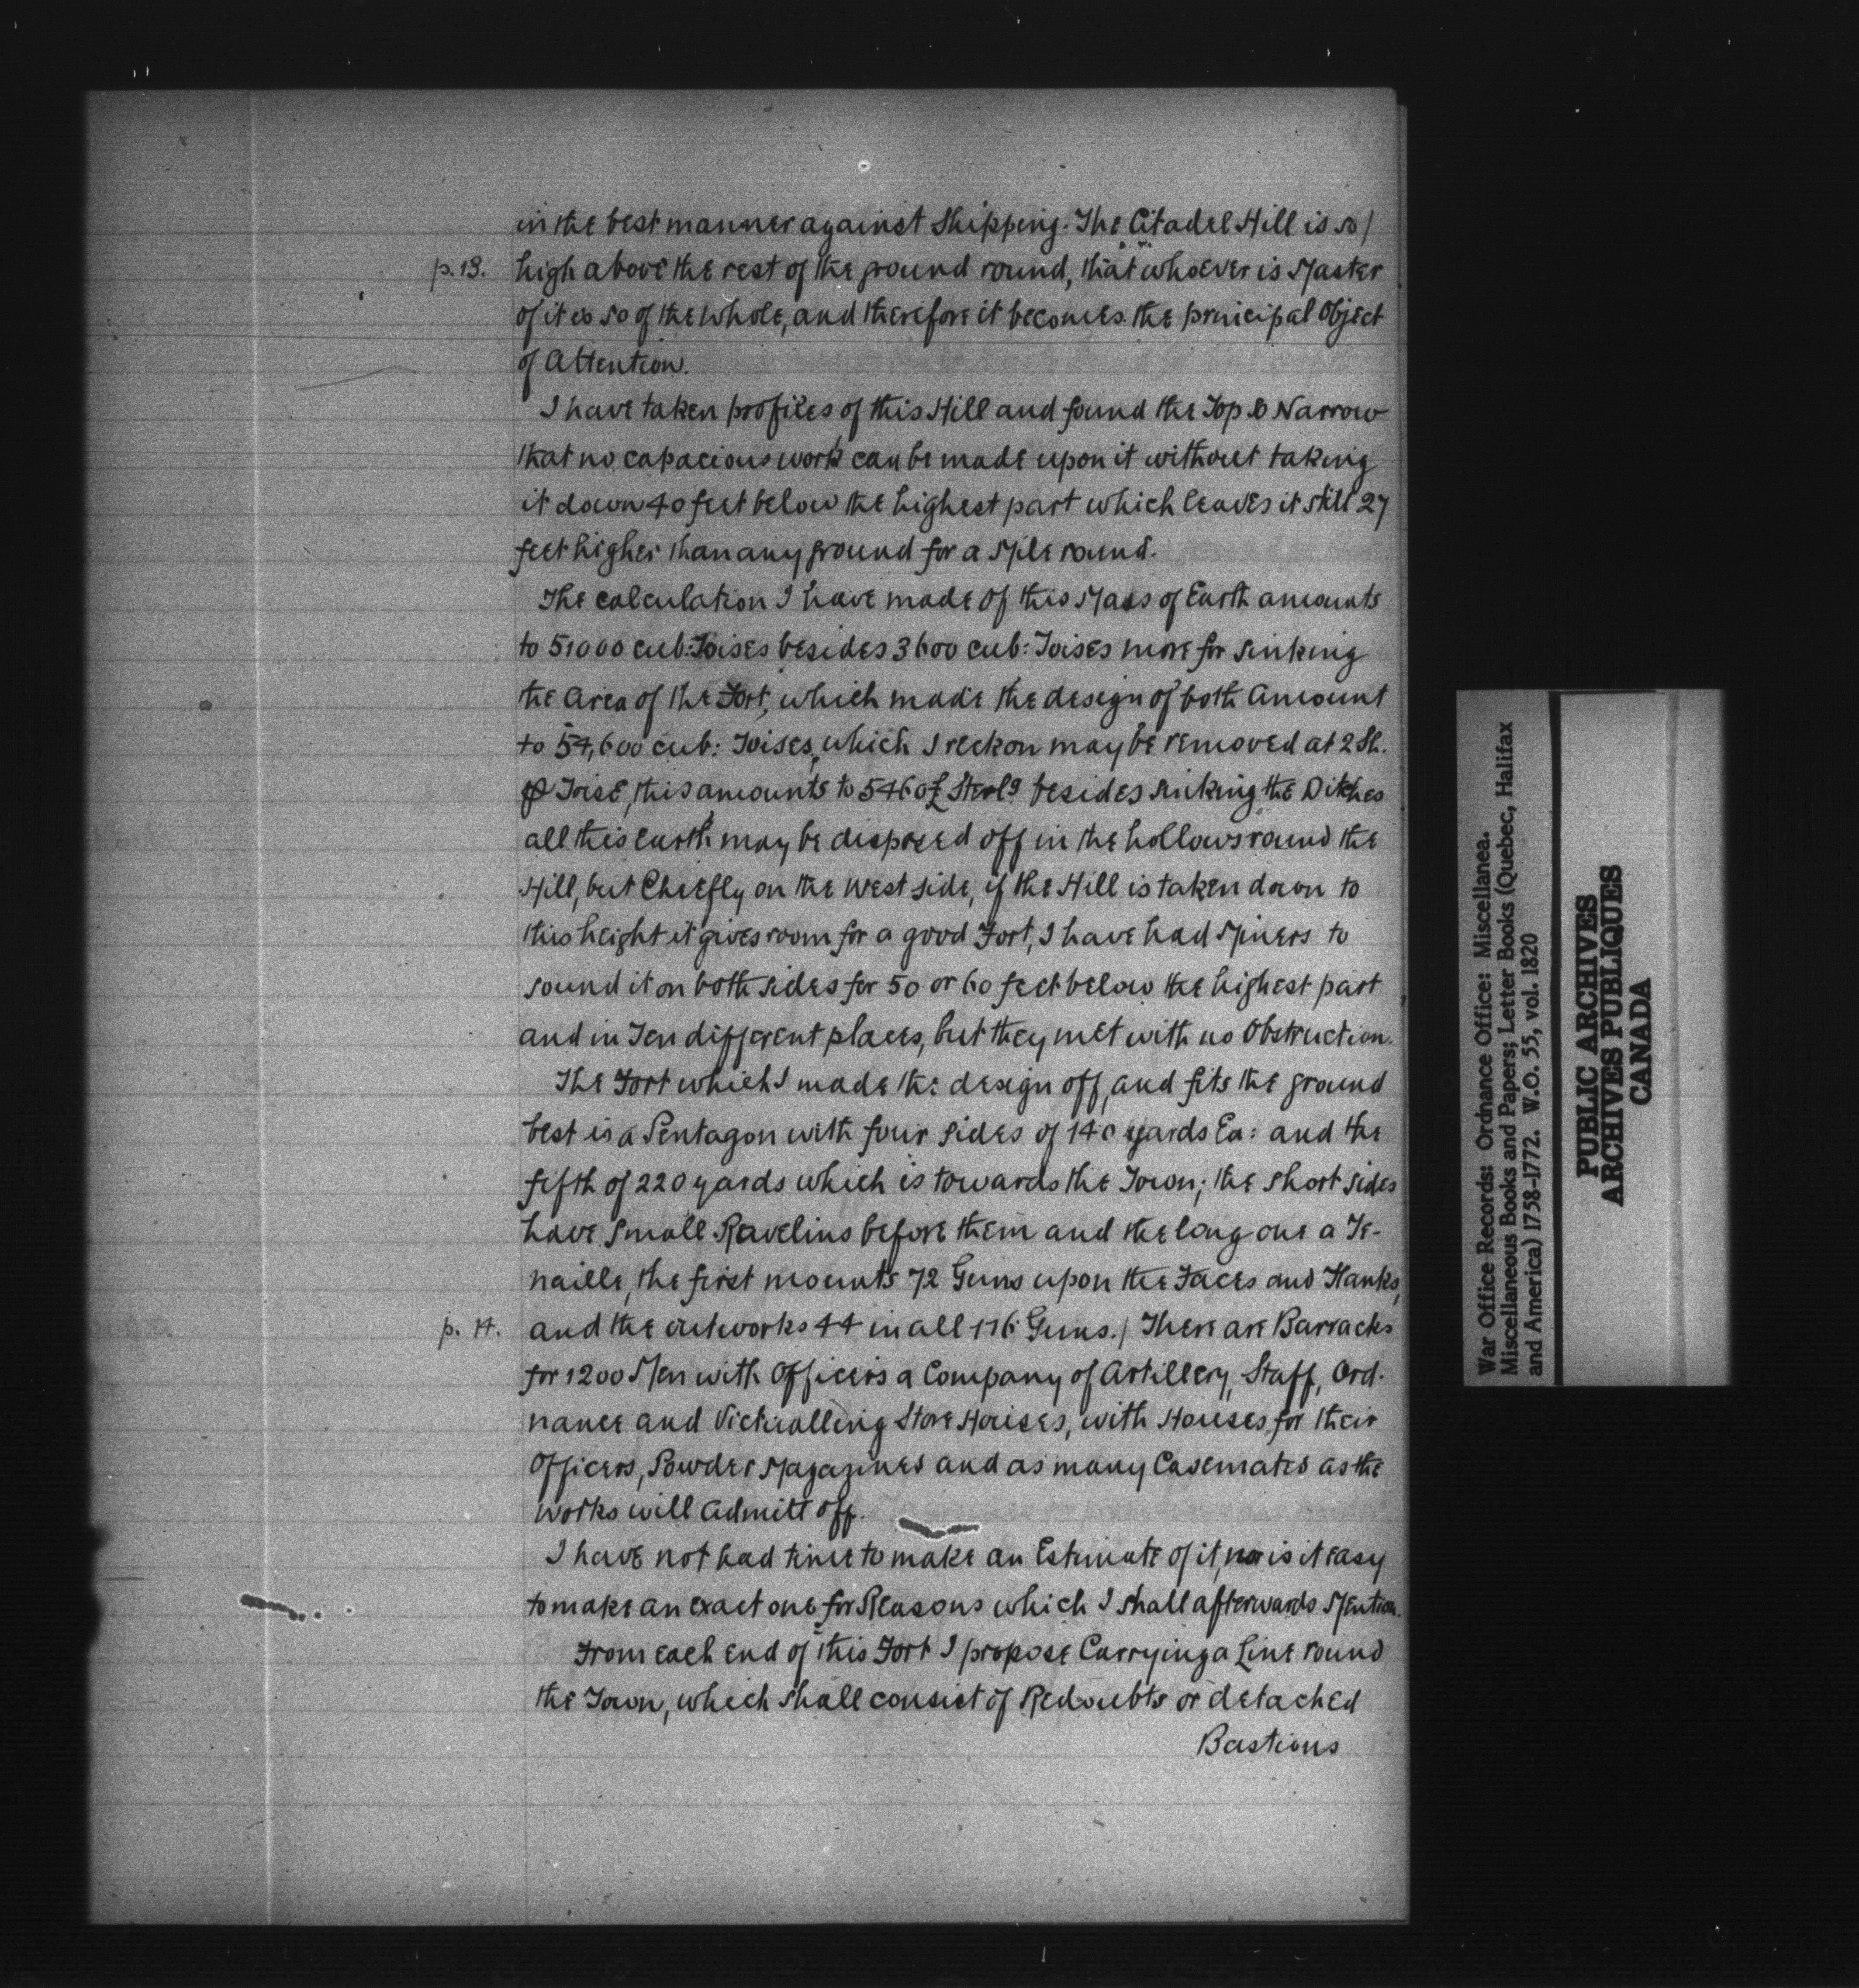 in the best manner against Shipping. The Citadel Hill is so/
p. 13. high above the rest of the ground round, that whoever is Master
of it is so of the Whole, and therefore it becomes the principal Object
of Attention.
I have taken profiles of this Hill and found the Top so Narrow
that no capacious work can be made upon it without taking
it down 40 feet below the highest part which leaves it still 27
feet higher than any ground for a Mile round.
The calculation I have made of this Mass of Earth amounts
to 51000 cub: Toises besides 3600 cub: Toises more for sinking
the Area of the Fort, which made the design of both Amount
to 54,600 cub: Toises, which I reckon may be removed at 2 Sh.
⅌ Toise, this amounts to 5460£ Sterlg besides sinking the Ditches
all this earth may be disposed off in the hollows round the
Hill, but Chiefly on the West side, if the Hill is taken down to
this height it gives room for a good Fort, I have had Miners to
sound it on both sides for 50 or 60 feet below the highest part
and in Ten different places, but they met with no Obstruction.
The Fort which I made the design off, and fits the ground
best is a Pentagon with four sides of 140 yards Ea: and the
fifth of 220 yards which is towards the Town; the short sides
have small Ravelins before them and the long one a Te-
naille, the first mounts 72 Guns upon the Faces and Flanks,
p. 14. and the outworks 44 in all 116 Guns./ There are Barracks
for 1200 Men with Officers a Company of Artillery, Staff, Ord-
nance and Victualling Store Houses, with Houses for their
Officers, Powder Magazines and as many Casemates as the
Works will Admitt off.
I have not had time to make an Estimate of it, nor is it easy
to make an exact one for Reasons which I shall afterwards Mention.
From each end of this Fort I propose Carrying a Line round
the Town, which shall consist of Redoubts or detached
Bastions
War Office Records: Ordnance Office: Miscellanea.
Miscellaneous Books and Papers; Letter Books (Quebec, Halifax
and America) 1758-1772. W.O. 55, vol. 1820
PUBLIC ARCHIVES
ARCHIVES PUBLIQUES
CANADA